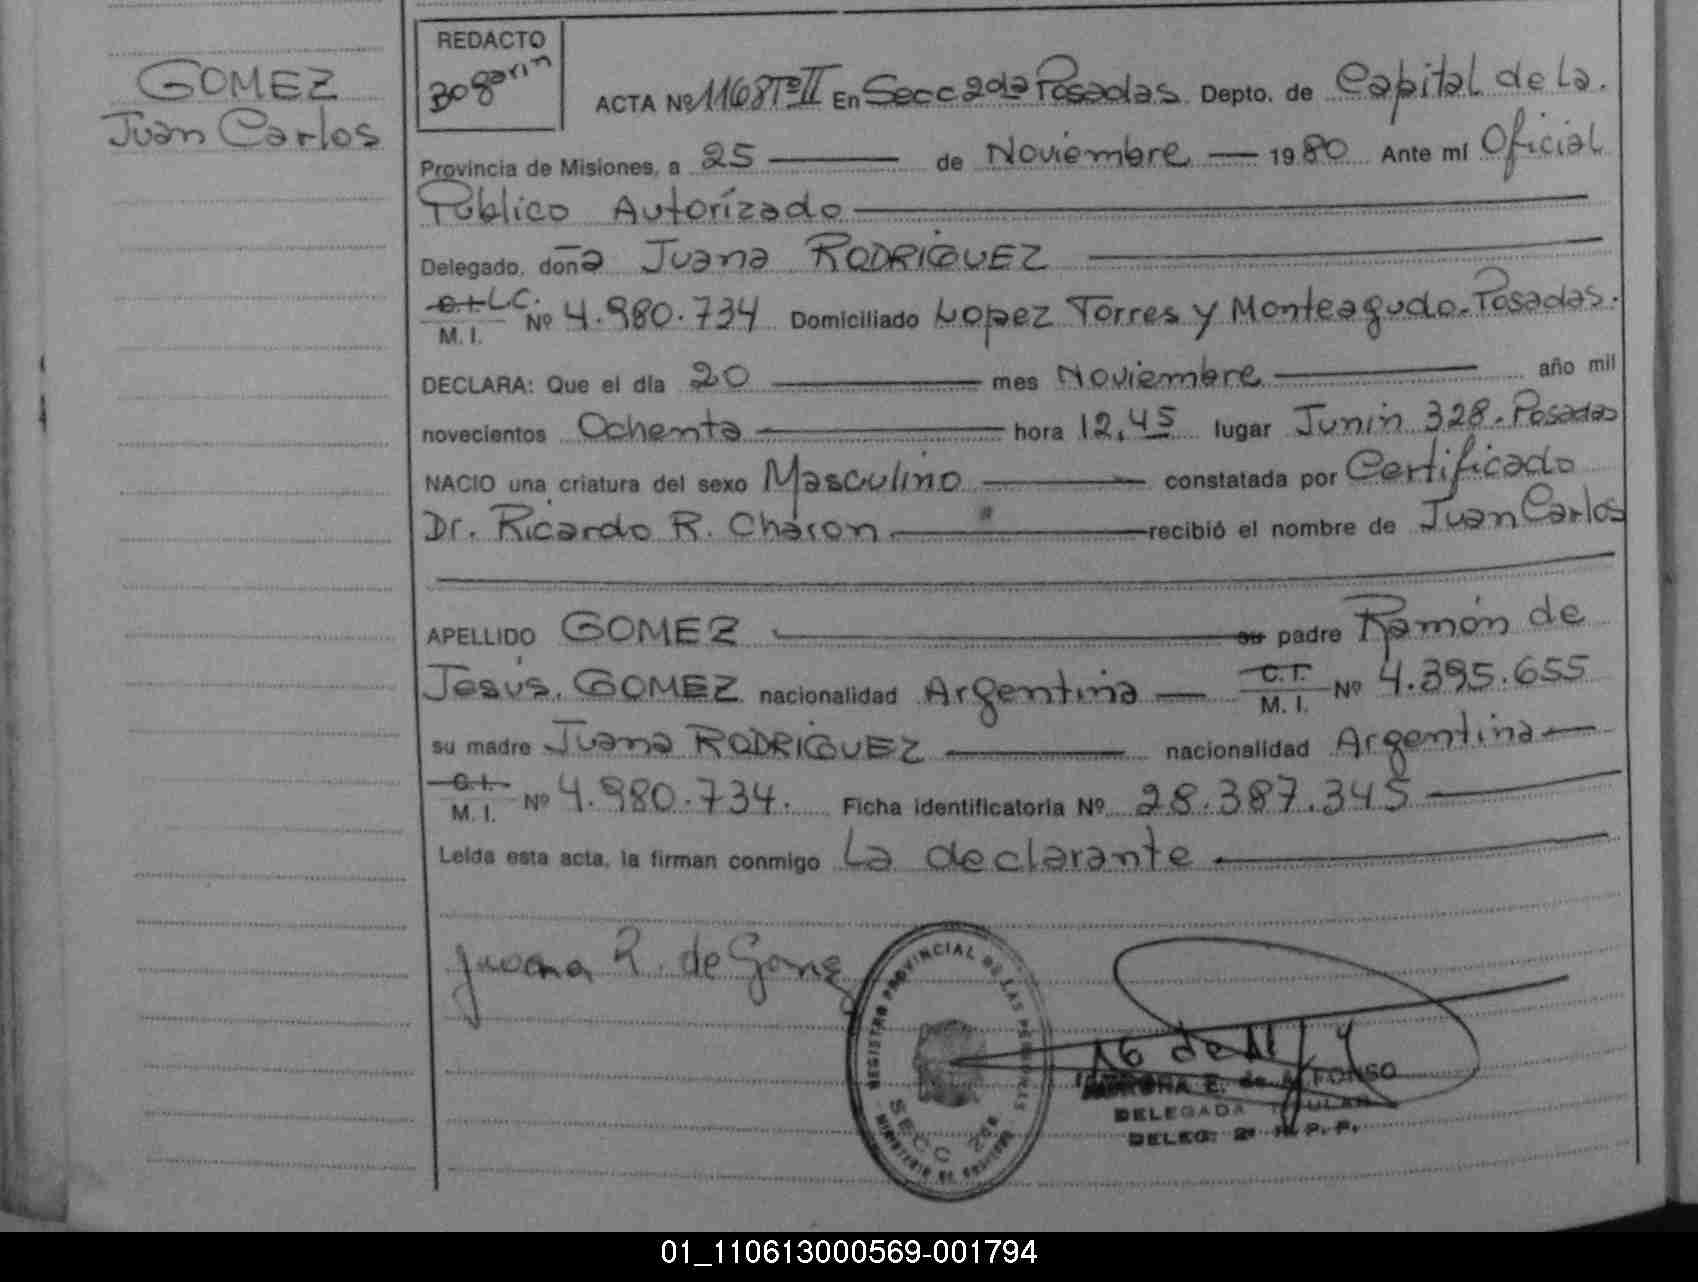 GOMEZ
Juan Carlos
REDACTO
Bogarin
ACTA Nº 1168 Tº II En Secc 2da Posadas Depto. de Capital de La.
Provincia de Misiones, a 25 de Noviembre 1980 Ante mí Oficial
Público Autorízado
Delegado, doña Juana RODRIGUEZ
C.I. L.C.
M. I. Nº 4.980.734 Domiciliado Lopez Torres y Monteagudo. Posadas.
DECLARA: Que el día 20 mes Noviembre año mil
novecientos Ochenta hora 12,45 lugar Junin 328. Posadas
NACIO una criatura del sexo Masculino constatada por Certificado
Dr. Ricardo R. Chacon recibió el nombre de Juan Carlos
APELLIDO GOMEZ su padre Ramón de
Jesús. GOMEZ nacionalidad Argentina C.I. M. I. Nº 4.395.655
su madre Juana RODRIGUEZ nacionalidad Argentina
C.I. M. I. Nº 4.980.734. Ficha identificatoria Nº 28.387.345
Leída esta acta, la firman conmigo La declarante
Juana R. de Gomez
REGISTRO PROVINCIAL DE LAS PERSONAS
SECC 2da
E. de ALFONSO
DELEGADA TITULAR
DELEG. 2ª R. P. P.
01_110613000569-001794